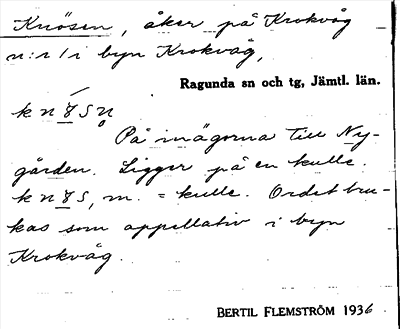 Knösen, åker på Krokvåg
n:r 1 i byn Krokvåg,
Ragunda sn och tg, Jämtl. län.
På inägorna till Ny-
gården. Ligger på en kulle.
m. = kulle. Ordet bru-
kas som appellativ i byn
Krokvåg.
BERTIL FLEMSTRÖM 1936